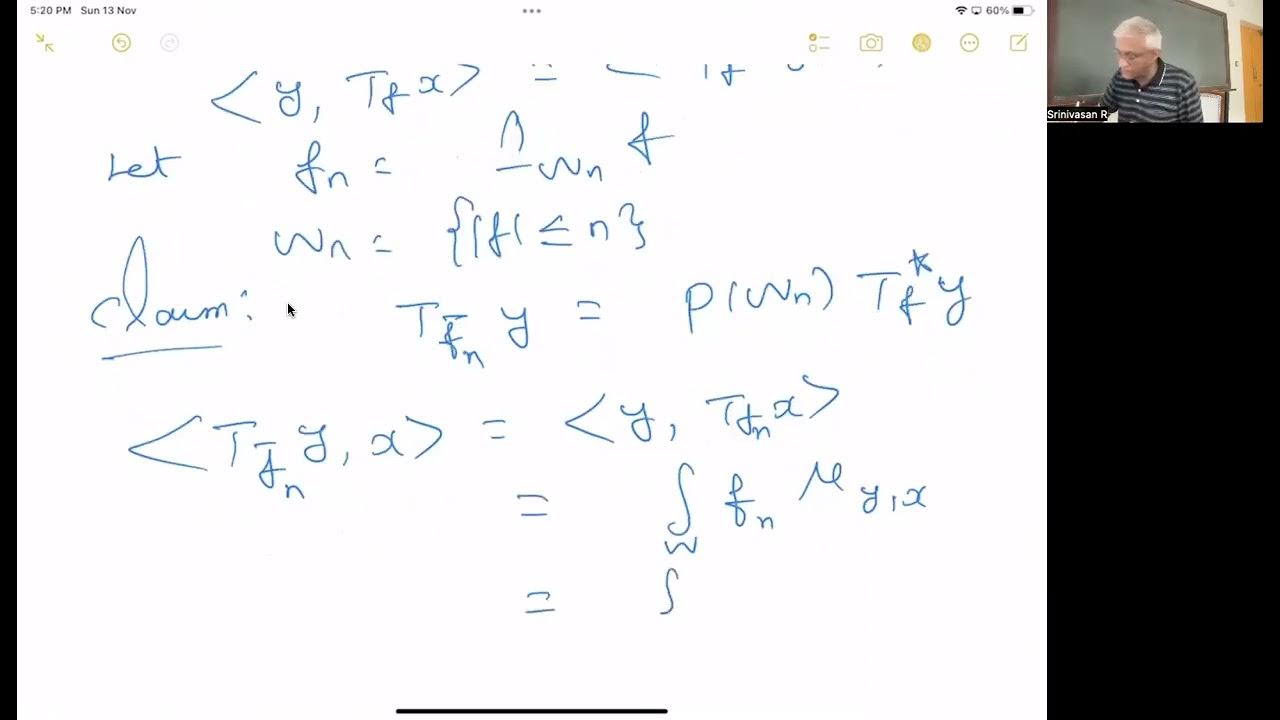 5:20 PM Sun 13 Nov
60%
Srinivasan R
< y, T_f x > =
Let f_n = 1_{W_n} f
W_n = {|f| ≤ n}
Claim: T_{f̄_n} y = P(W_n) T_f^* y
< T_{f̄_n} y, x > = < y, T_{f_n} x >
= ∫_W f_n μ_{y,x}
= ∫